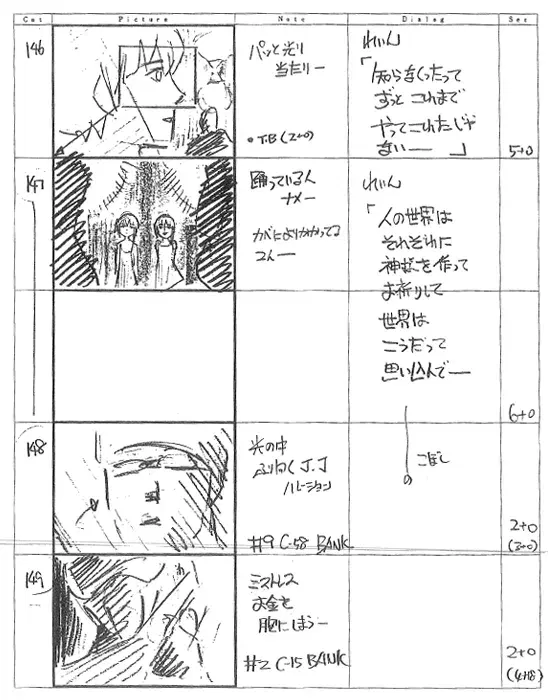 Cut Picture Note Dialog Sec
146
パッと光り
当たりー
T.B (2+0)
れいん
「知らなくったって
ずっと これまで
やってこれたじゃ
ないー 」
5+0
147
踊っている人
ナメー
カベによりかかってる
2人ー
れいん
「人の世界は
それぞれに
神様を作って
お祈りして
世界は
こうだって
思い込んでー
6+0
148
光の中
ふりむく J.J
ハレーション
#9 C-58 BANK
の
こぼし
2+0
149
ミストレス
お金を
胸にしまうー
#2 C-15 BANK
2+0
(4+18)